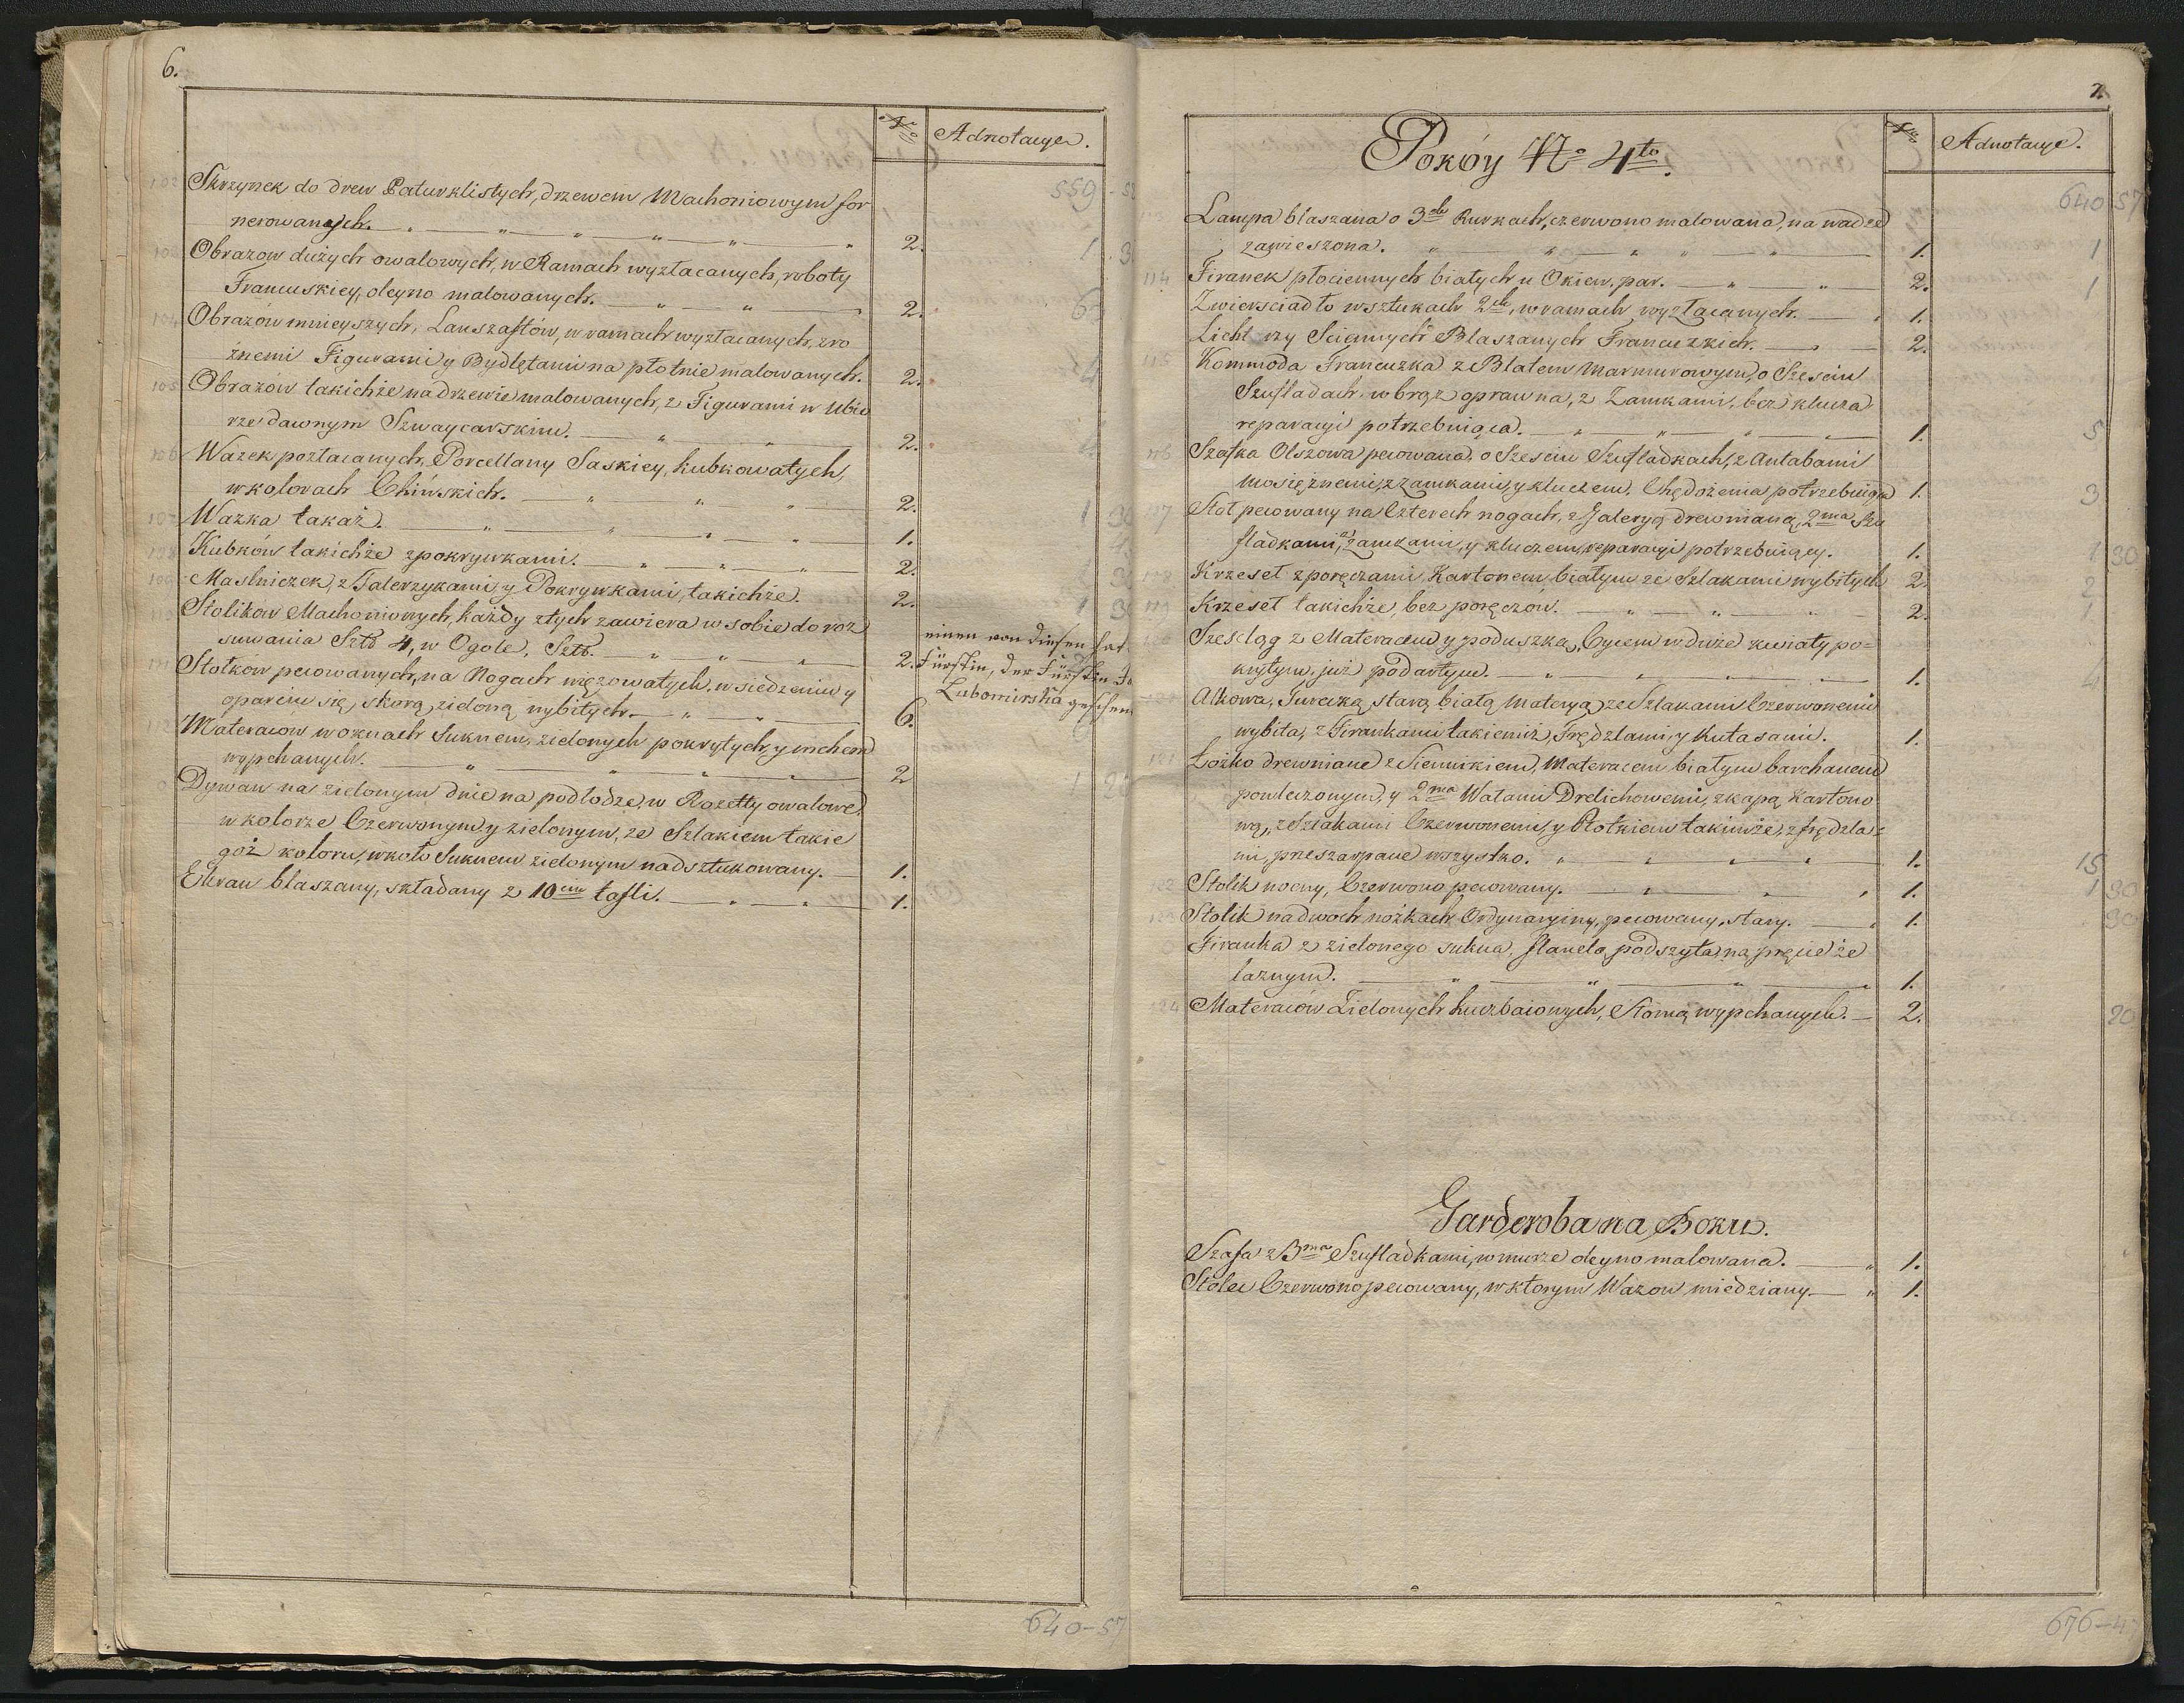 6.
No Adnotacye.
559
102 Skrzynek do drew Paturklistych, drzewem Machoniowym for
nerowanych. 2.
Obrazow dużych owalowych, w Ramach wyzłacanych, roboty
Francuskiey, oleyno malowanych. 2.
Obrazów mnieyszych, Lanszaftów, w ramach wyzłacanych, z ro
źnemi Figurami y Bydlętami na płotnie malowanych. 2.
105 Obrazów takichże na drzewie malowanych, z Figurami w Ubio
rze dawnym Szwaycarskim. 2.
106 Wazek pozłacanych, Porcellany Saskiey, kubkowatych,
w kolorach Chińskich. 2.
107 Wazka takaż. 1.
108 Kubków takichże z pokrywkami. 2.
109 Maslniczek, z Talerzykami, y Pokrywkami, takichże. 2.
Stolikow Machoniowych, każdy z tych zawiera w sobie do roz
suwania Sztk 4, w Ogole, Sztk. 2.
einen von diesen hat
Fürstin, der Fürstin
Lubomirska
111 Stołków pecowanych, na Nogach wężowatych, w siedzeniu y
oparciu się, skorą zieloną wybitych. 6.
Materacow w oknach Suknem, zielonych pokrytych, y mchem
wypchanych. 2
Dywan na zielonym dnie na podłodze, w Rozetty owalowe,
w kolorze Czerwonym y zielonym, ze Szlakiem takie
goż koloru, w koło Suknem zielonym nadsztukowany. 1.
Ekran blaszany, składany z 10ciu tafli. 1.
640-57
7.
Pokóy No 4to.
No Adnotacye.
640 57
Lampa blaszana o 3ch Rurkach, czerwono malowana, na wadze
zawieszona. 1. 1
114 Firanek płociennych białych u Okien, par. 2. 1
Zwierściadło w sztukach 2ch, w ramach wyzłacanych. 1.
Lichtarzy Sciennych Blaszanych Francuzkich. 2.
115 Kommoda Francuzka z Blatem Marmurowym, o Sześciu
Szufladach, w brąz oprawna, z Zamkami, bez klucza
reparacyi potrzebuiąca. 1. 5
116 Szafka Olszowa pecowana, o Sześciu Szufladkach, z Antabami
mosiężnemi, z Zamkami, y kluczem, Chędożenia potrzebuiąca 1. 3
117 Stoł pecowany na Czterech nogach, z Galeryą drewnianą, 2ma Szu
fladkami, z Zamkami, y kluczem, reparacyi potrzebuiący. 1. 1 30
118 Krzeseł z poręczami, Kartonem białym ze Szlakami wybitych 2. 2
119 Krzeseł takichże, bez poręczów. 2. 1
120 Szesląg z Materacem y poduszką, Cycem w duże kwiaty po=
krytym, już podartym. 1. 4
Alkowa, Turecką starą białą materyą ze Szlakami Czerwonemi
wybita, z Firankami takiemiż, Frędzlami, y Kutasami. 1.
121 Łożko drewniane z Siennikiem, Materacem białym barchanem
powleczonym, y 2ma Wałami Drelichowemi, z kapą Kartono
wą, z Szlakami Czerwonemi, y Płotkiem takimże, z frędzla=
mi, przeszarpane wszystko. 1. 15
122 Stolik nocny, Czerwono pecowany. 1. 1 30
123 Stolik na dwoch nóżkach Ordynaryiny, pecowany, stary. 1. 30
Firanka z zielonego sukna, flanelą podszyta, na pręcie że
laznym. 1.
124 Materaców Zielonych kuczbaiowych, Słomą wypchanych. 2. 20
Garderoba na Boku.
Szafa z 3ma Szufladkami, w murze oleyno malowana. 1.
Stolec Czerwono pecowany, w ktorym Wazon miedziany. 1.